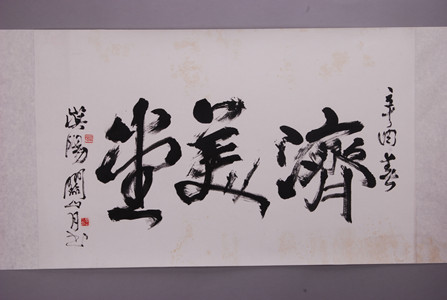 辛酉春
濟美堂
漠陽
關山月書